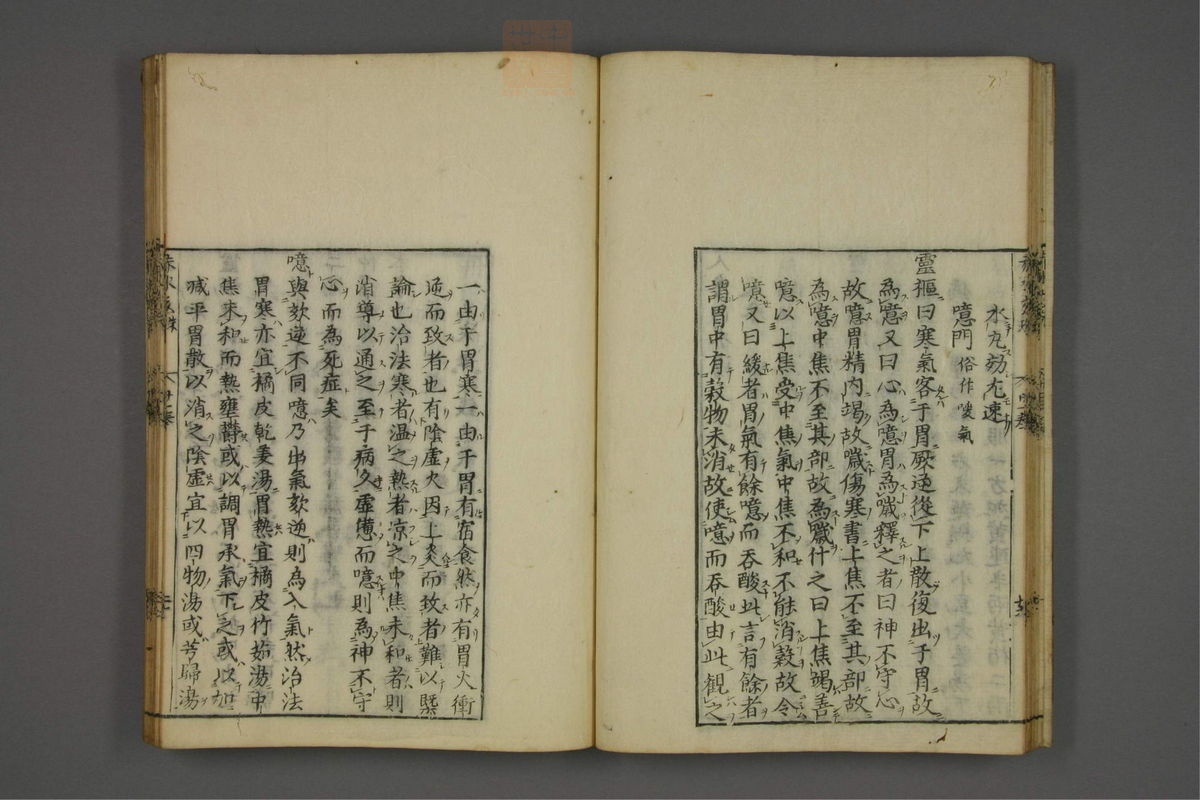 水丸効尤速
噫門 俗作噯氣
靈樞曰寒氣客于胃厥逆從下上散復出于胃故
為噫又曰心為噫胃為噦釋之者曰神不守心
故噫胃精内竭故噦傷寒書上焦不至其部故
為噫中焦不至其部故為噦什之曰上焦竭善
噫以上焦受中焦氣中焦不和不能消穀故令
噫又曰緩者胃氣有餘噫而吞酸此言有餘者
謂胃中有穀物未消故使噫而吞酸由此観之
一由于胃寒一由于胃有宿食然亦有胃火衝
逆而致者也有陰虚火因上炎而致者難以槩
論也治法寒者温之熱者凉之中焦未和者則
消導以通之至于病久虚憊而噫則為神不守
心而為死症矣
噫與欬逆不同噫乃出氣欬逆則為入氣然治法
胃寒亦宜橘皮乾姜湯胃熱宜橘皮竹茹湯中
焦未和而熱壅欝或以調胃承氣下之或以加
减平胃散以消之陰虚宜以四物湯或芎歸湯